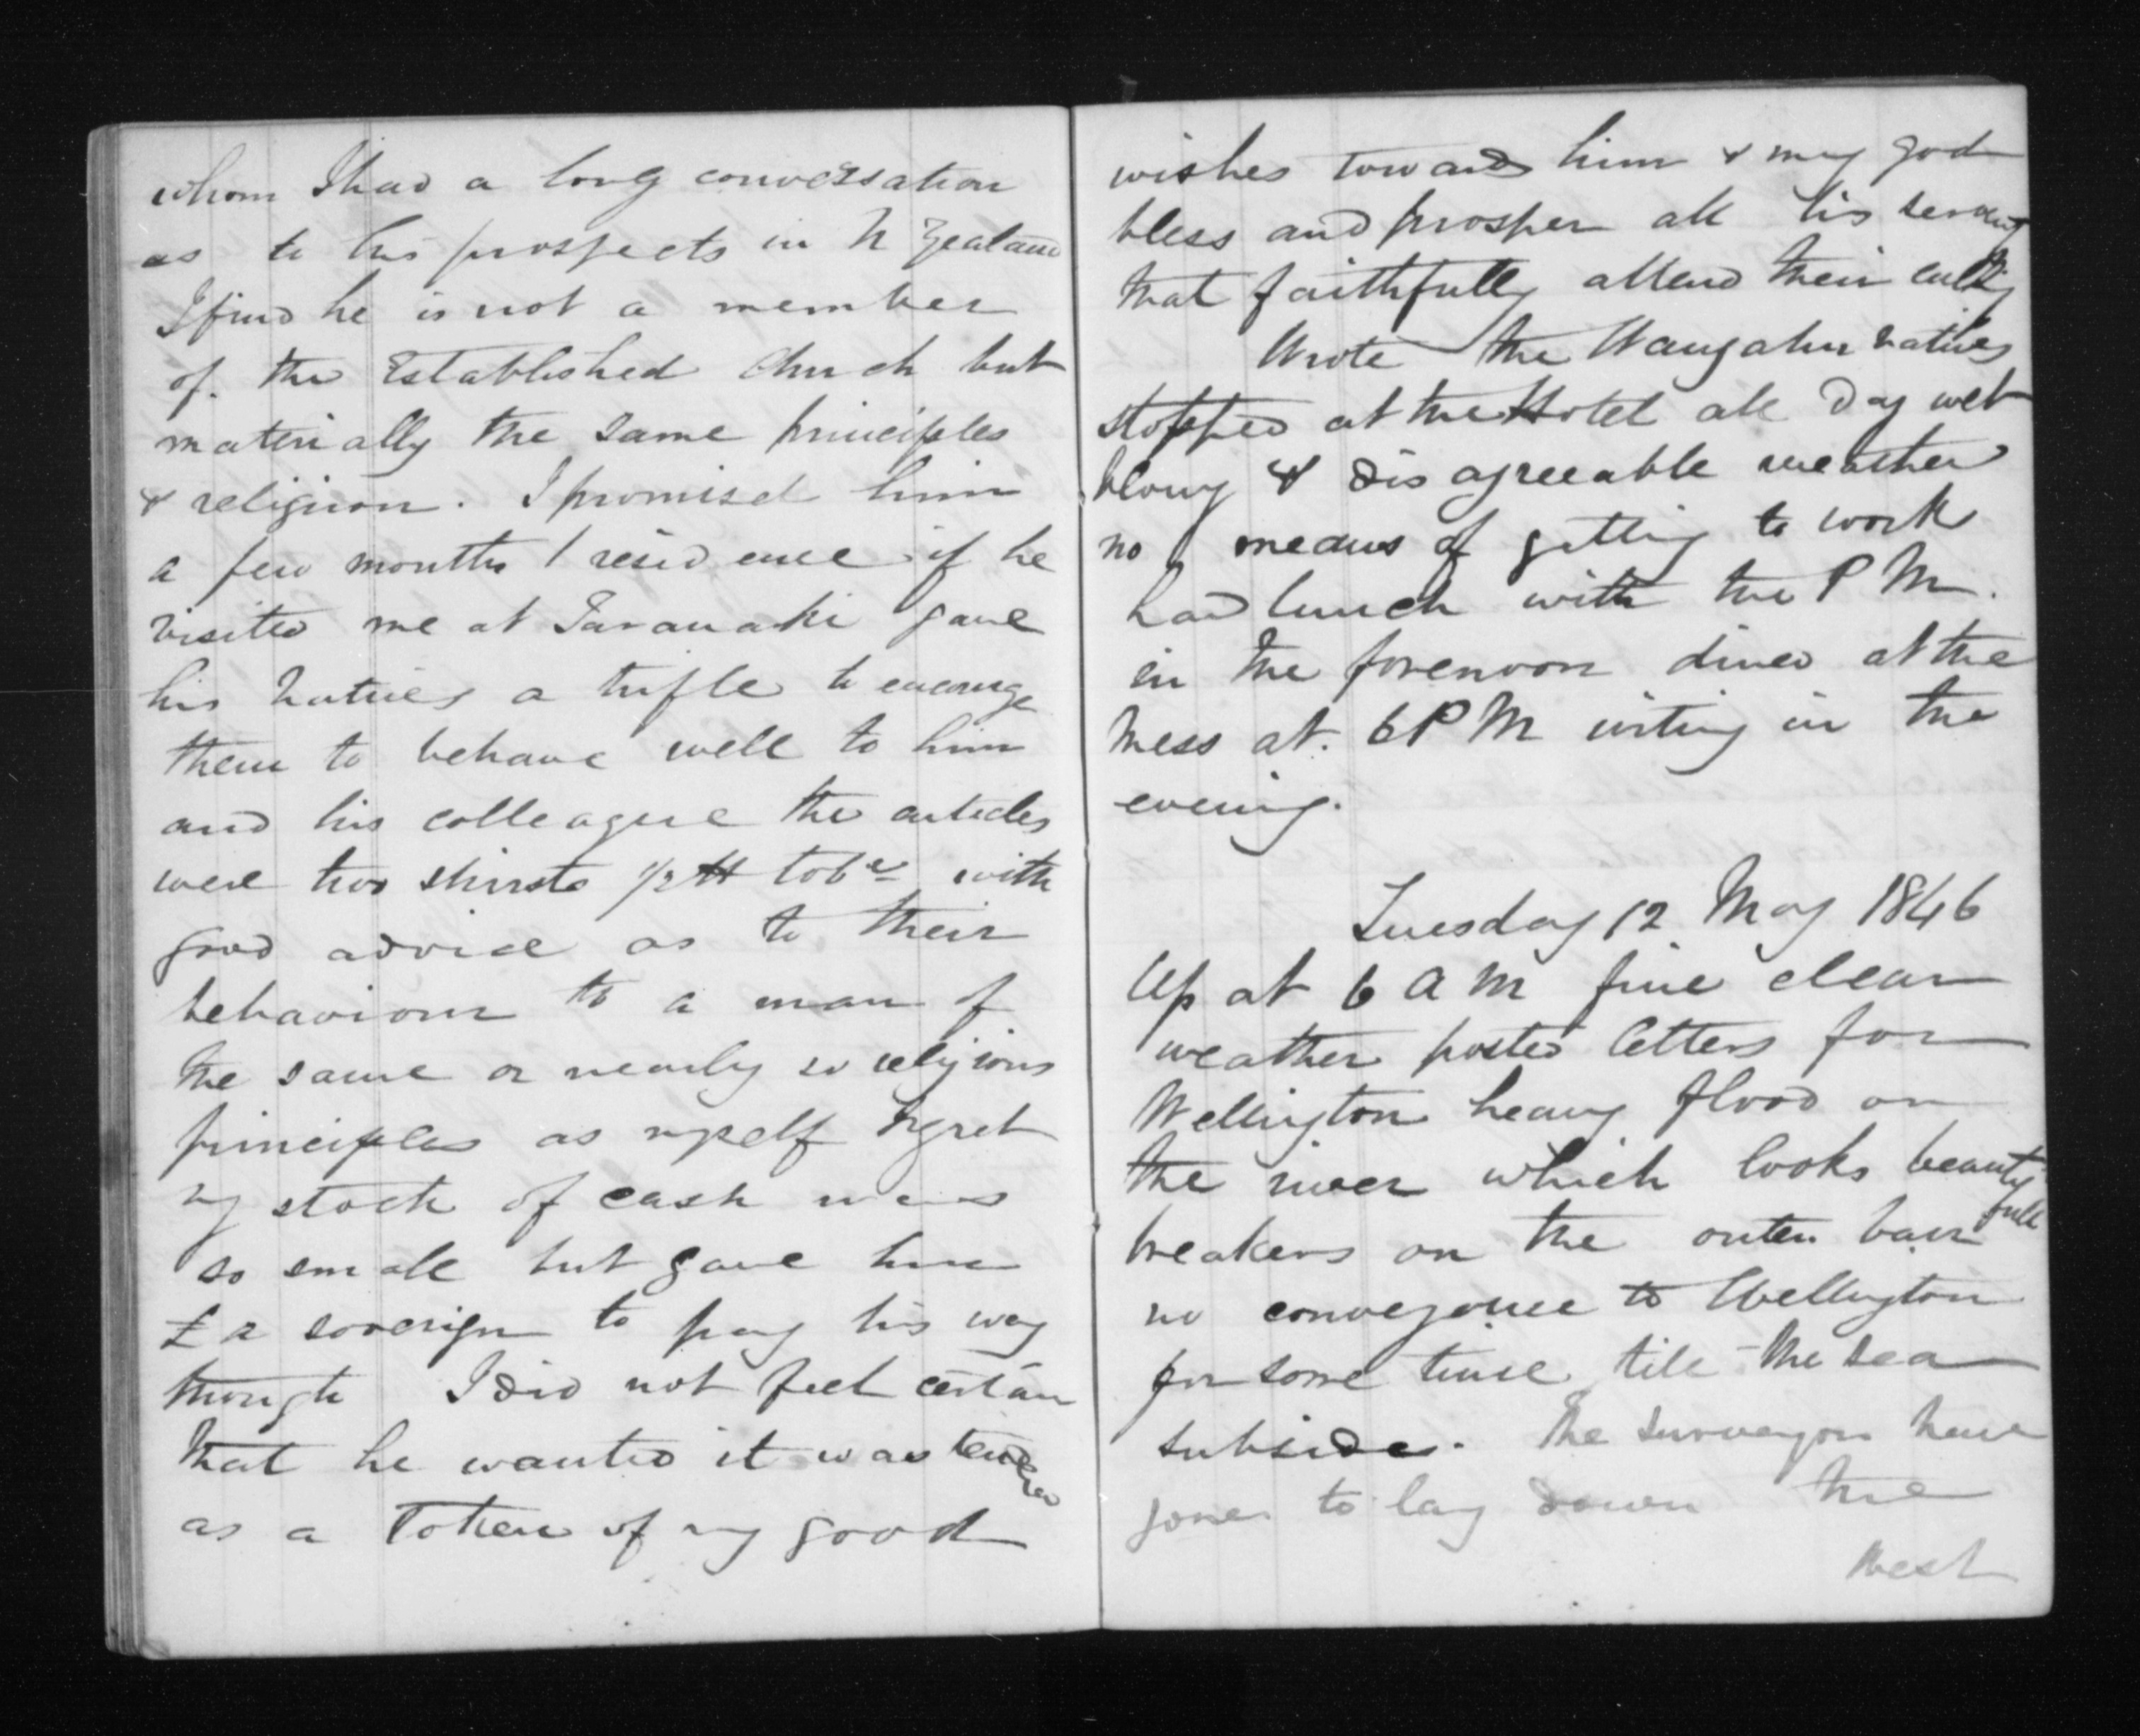 whom I had a long conversation
as to his prospects in N Zealand
I find he is not a member
of. the Established Church but
materially the same principles
& religion. I promised him
a few months residence if he
visited me at Taranaki gave
his natives a trifle to encourage
them to behave well to him
and his colleague the articles
were two shirsts 1/2 tt tobc with
good advice as to their
behaviour to a man of
the same or nearly so religious
principles as myself regret
my stock of cash was
so small but gave him
£ a soverign to pay his way
though I did not feel certain
that he wanted it was tendered
as a Token of my good
wishes towards him & may god
bless and prosper all his servants
that faithfully attend their calling
Wrote the natives
stopped at the Hotel all day wet
blowy & disagreeable weather
no means of getting to work
had lunch with the P M.
in the forenoon dined at the
mess at. 6 P M writing in the
evening.
Tuesday 12 May 1846
Up at 6 A M fine clear
weather posted letters for
Wellington heavy flood on
the river which looks beautyfull
breakers on the outer barr
no conveyance to Wellington
for some time till the sea
subsides. The surveyors have
gone to lay down the
West